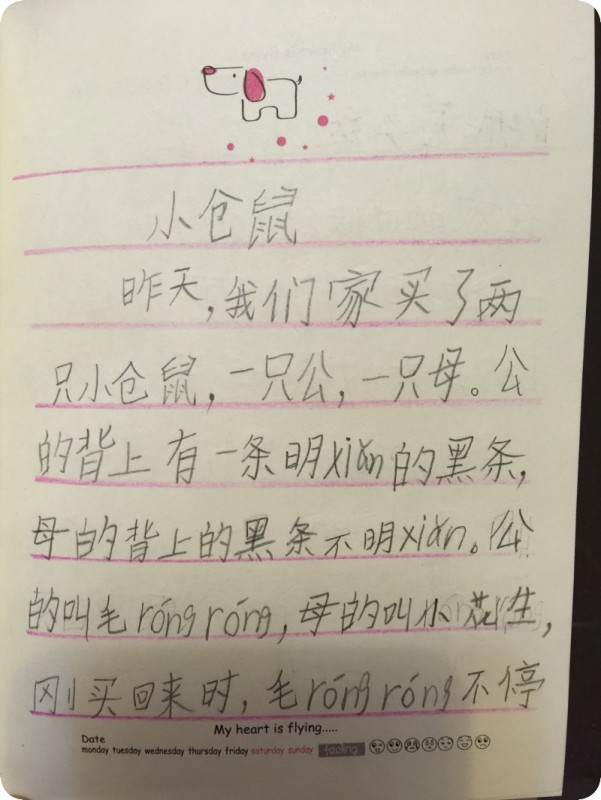 小仓鼠
昨天，我们家买了两
只小仓鼠，一只公，一只母。公
的背上有一条明xiǎn的黑条，
母的背上的黑条不明xiǎn。公
的叫毛róng róng，母的叫小花生，
刚买回来时，毛róng róng不停
My heart is flying.....
Date
monday tuesday wednesday thursday friday saturday sunday feeling